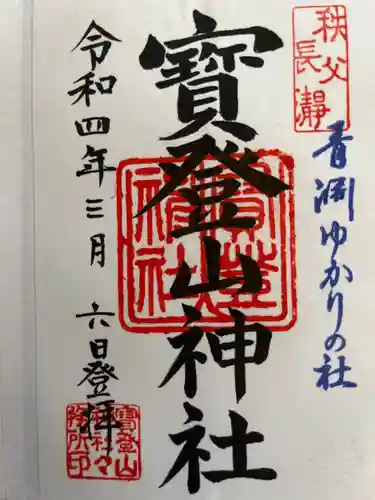 秩父
長瀞
青淵ゆかりの社
寳登山神社
寳登
山神
社
令和四年三月
六日登拝
寳登山
神社々
務所印